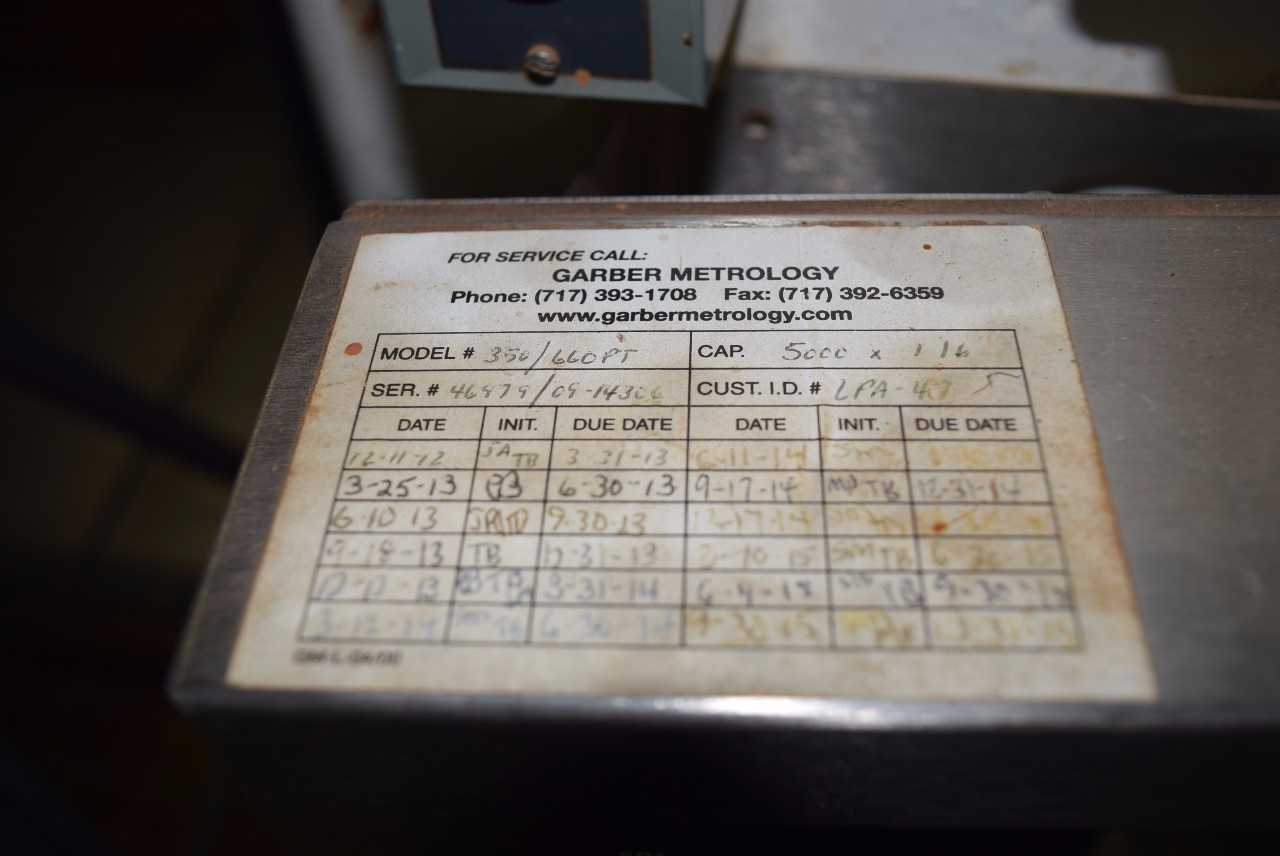 FOR SERVICE CALL:
GARBER METROLOGY
Phone: (717) 393-1708 Fax: (717) 392-6359
www.garbermetrology.com
MODEL # 350/660PT CAP. 5000 x 1 lb
SER. # 46979/09-14306 CUST. I.D. # LPA-47
DATE INIT. DUE DATE DATE INIT. DUE DATE
12-11-12 JA TB 3-31-13 6-11-14
3-25-13 6-30-13 9-17-14 TB 12-31-14
6-10 13 9-30-13 12-17-14
9-18-13 TB 12-31-13 3-10 15 SM TB
12-12-13 TB 3-31-14 6-4-15 TB 9-30-15
3-12-14 6-30-14 9-30-15 12-31-15